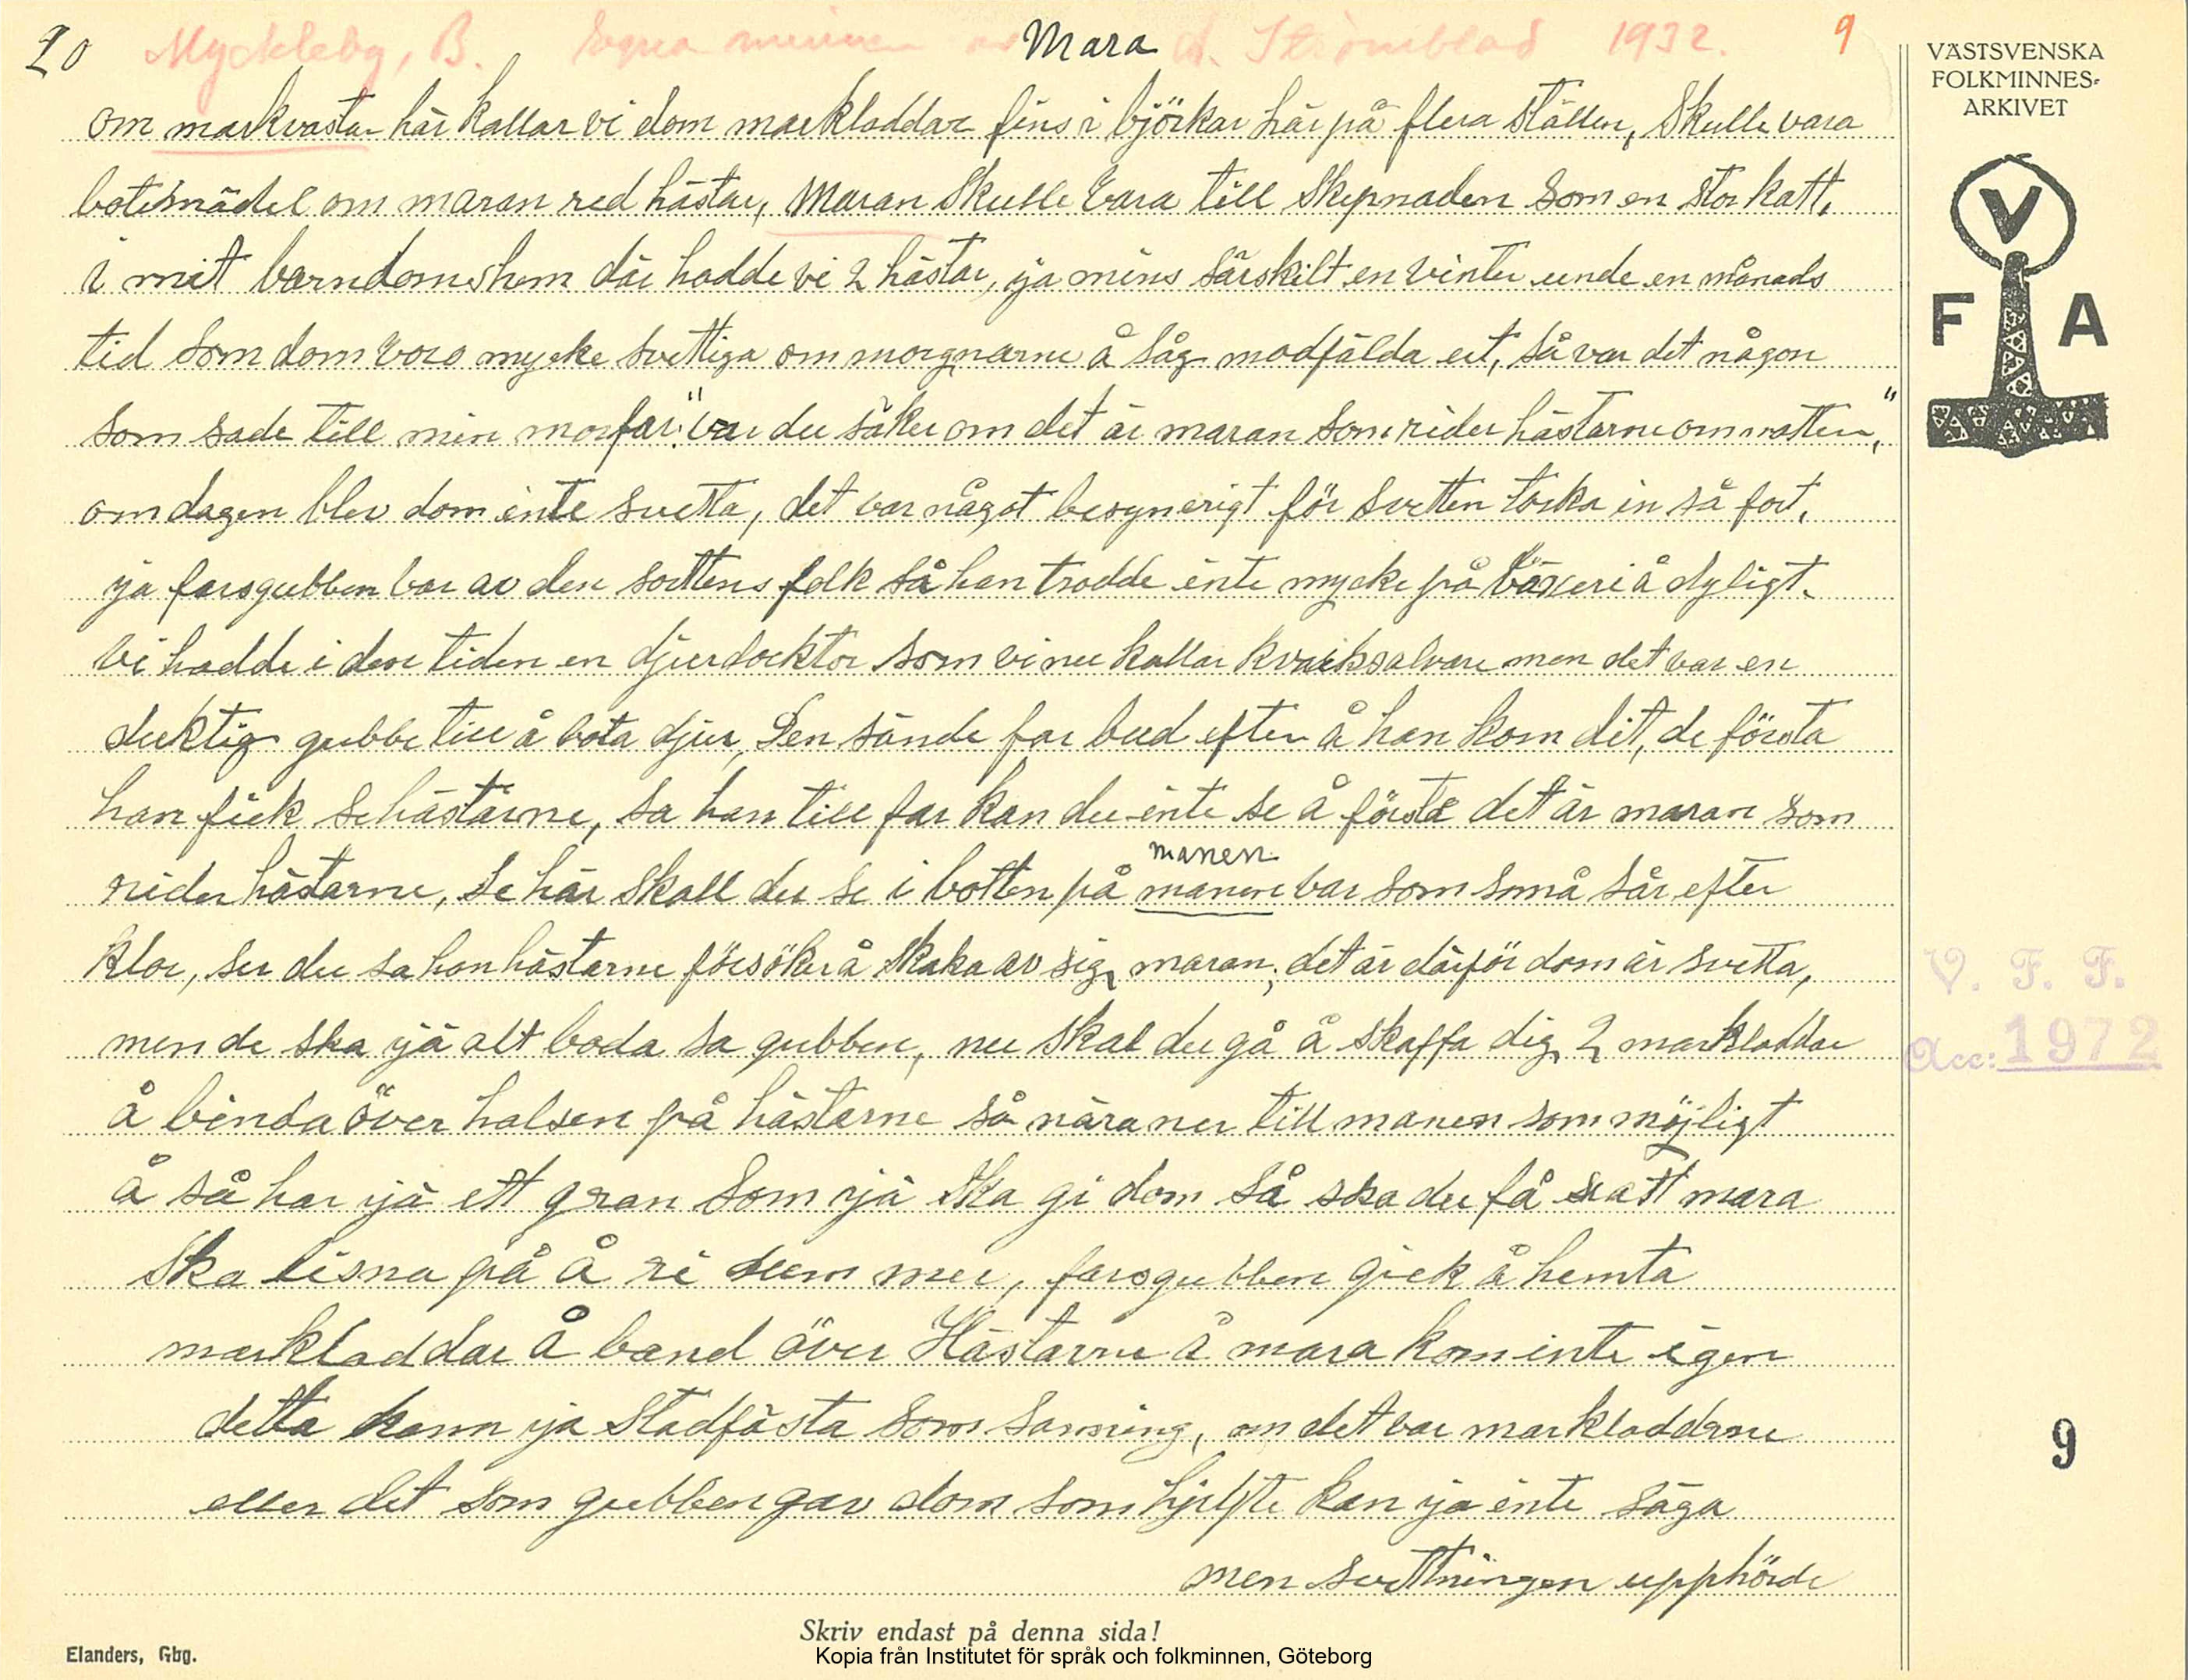 20 Myckleby, B. Egna minnen av Mara A. Strömblad 1932. 9
om markvastar här kallar vi dom markloddar fins i björkar här på flera ställen, Skulle vara
botesmädel om maran red hästar, Maran skulle vara till skepnaden som en stor katt,
i mit barndomshem där hadde vi 2 hästar, ja mins särskilt en vinter unde en månads
tid som dom voro mycke svettiga om morgnarne å såg modfälda ut, så var det någon
som sade till min morfar: "var du säker om det är maran som rider hästarne om natten,"
om dagen blev dom inte svetta, det var något besynerigt för svetten torka in så fort,
ja farsgubben var av den sortens folk så han trodde inte mycke på växeri å dyligt.
vi hadde i den tiden en djurdocktor som vi nu kallar kvacksalvare men det var en
ducktig gubbe till å bota djur, Den sände far bud efter å han kom dit, de första
han fick se hästarne, sa han till far kan du inte se å förstå det är maran som
manen
rider hästarne, se här skall du se i botten på manen var som små sår efter
klor, ser du sa han hästarne försöker å skaka av sig maran, det är därför dom är svetta,
men de ska jä alt boda sa gubben, nu skal du gå å skaffa dig 2 markloddar
å binda över halsen på hästarne så nära ner till manen som möjligt
å så har jä ett gran som jä ska gi dom så ska du få se att mara
ska lisna på å ri dem mer, farsgubben gick å hemta
markloddar å band över Hästarne å mara kom inte igen
detta kann ja stadfästa som sanning, om det var markloddarne
eller det som gubben gav dom som hjelpte kan ja inte säga
men svettningen upphörde
VÄSTSVENSKA
FOLKMINNES-
ARKIVET
V
F A
V. F. F.
Acc: 1972
9
Skriv endast på denna sida!
Elanders, Gbg.
Kopia från Institutet för språk och folkminnen, Göteborg